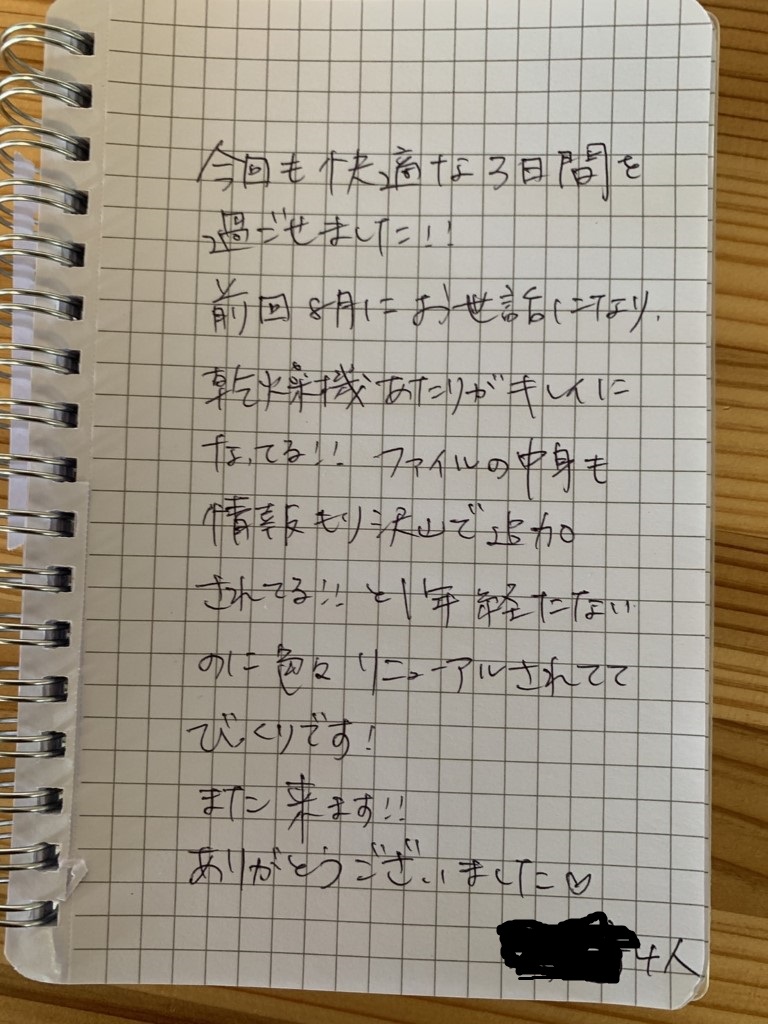 今回も快適な3日間を
過ごせました!!
前回8月にお世話になり、
乾燥機あたりがキレイに
なってる!! ファイルの中身も
情報もり沢山で追加
されてる!! と1年経たない
のに色々リニューアルされてて
びっくりです!
また来ます!!
ありがとうございました♡
4人